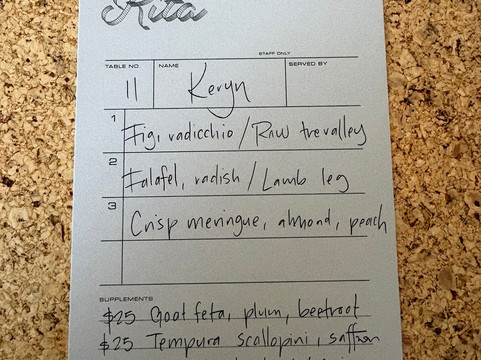 Rita
STAFF ONLY
TABLE NO. NAME SERVED BY
11 Keryn
1 Fig, radicchio / Raw trevalley
2 Falafel, radish / Lamb leg
3 Crisp meringue, almond, peach
SUPPLEMENTS
$25 Goat feta, plum, beetroot
$25 Tempura scallopini, saffron